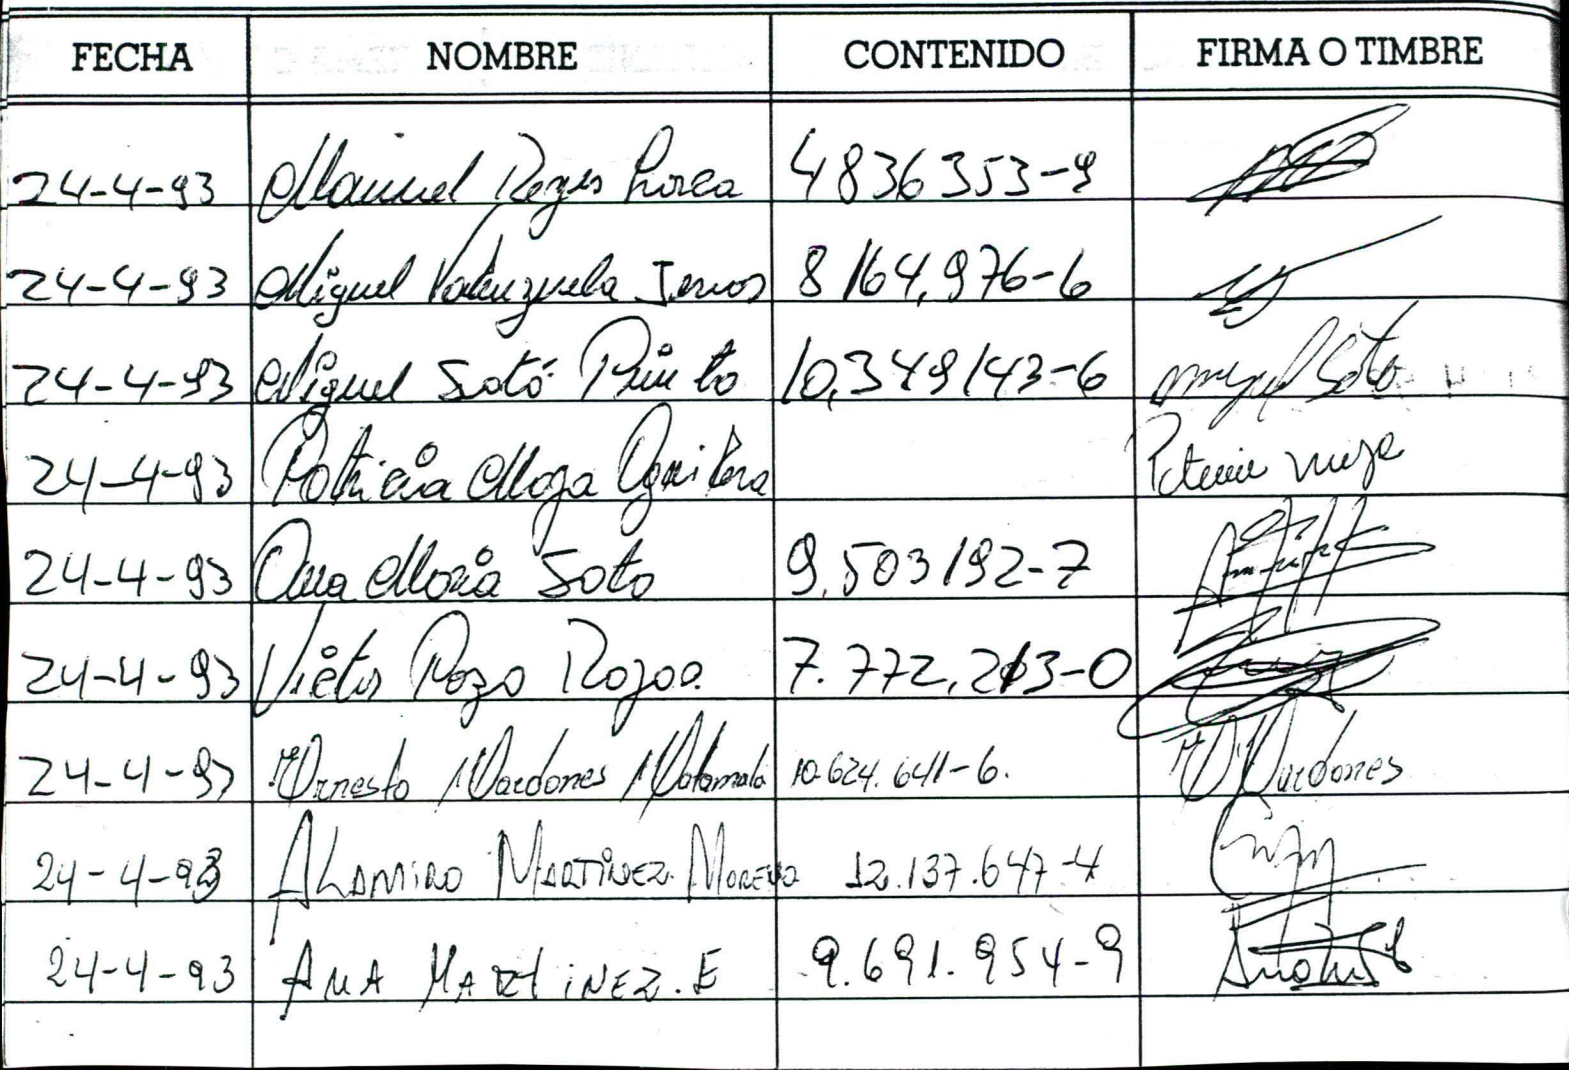 FECHA NOMBRE CONTENIDO FIRMA O TIMBRE
24-4-93 Manuel Reyes Lorca 4836353-9
24-4-93 Miguel Valenzuela 8164,976-6
24-4-93 Miguel Soto Pinto 10,349143-6 Miguel Soto
24-4-93 Patricia Moya Aguilera
24-4-93 Ana Mora Soto 9.503192-7
24-4-93 Victor Pozo Rojas 7.772,213-0
24-4-93 Ernesto Vardones Matamala 10.624.641-6. Vardones
24-4-93 ALAMIRO MARTINEZ MORENO 12.137.647-4
24-4-93 ANA MARTINEZ.E 9.691.954-9